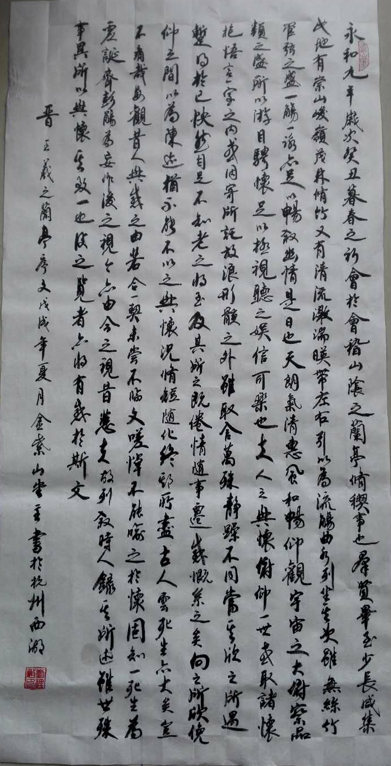 永和九年歲次癸丑暮春之初會於會稽山陰之蘭亭脩稧事也群賢畢至少長咸集
此地有崇山峻嶺茂林脩竹又有清流激湍暎帶左右引以為流觴曲水列坐其次雖無絲竹
管弦之盛一觴一詠亦足以暢敘幽情是日也天朗氣清惠風和暢仰觀宇宙之大俯察品
類之盛所以遊目騁懷足以極視聽之娛信可樂也夫人之興懷俯仰一世或取諸懷
抱悟言一室之內或因寄所託放浪形骸之外雖取舍萬殊靜躁不同當其欣之所遇
蹔得於己快然自足不知老之將至及其所之既倦情隨事遷感慨係之矣向之所欣俛
仰之間以為陳迹猶不能不以之興懷況脩短隨化終期於盡古人雲死生亦大矣豈
不痛哉每觀昔人興感之由若合一契未嘗不臨文嗟悼不能喻之於懷固知一死生為
虛誕齊彭殤為妄作後之視今亦由今之視昔悲夫故列敘時人錄其所述雖世殊
事異所以興懷其致一也後之覽者亦將有感於斯文
晉王羲之蘭亭序文戊戌年夏月金紫山堂主書於杭州西湖